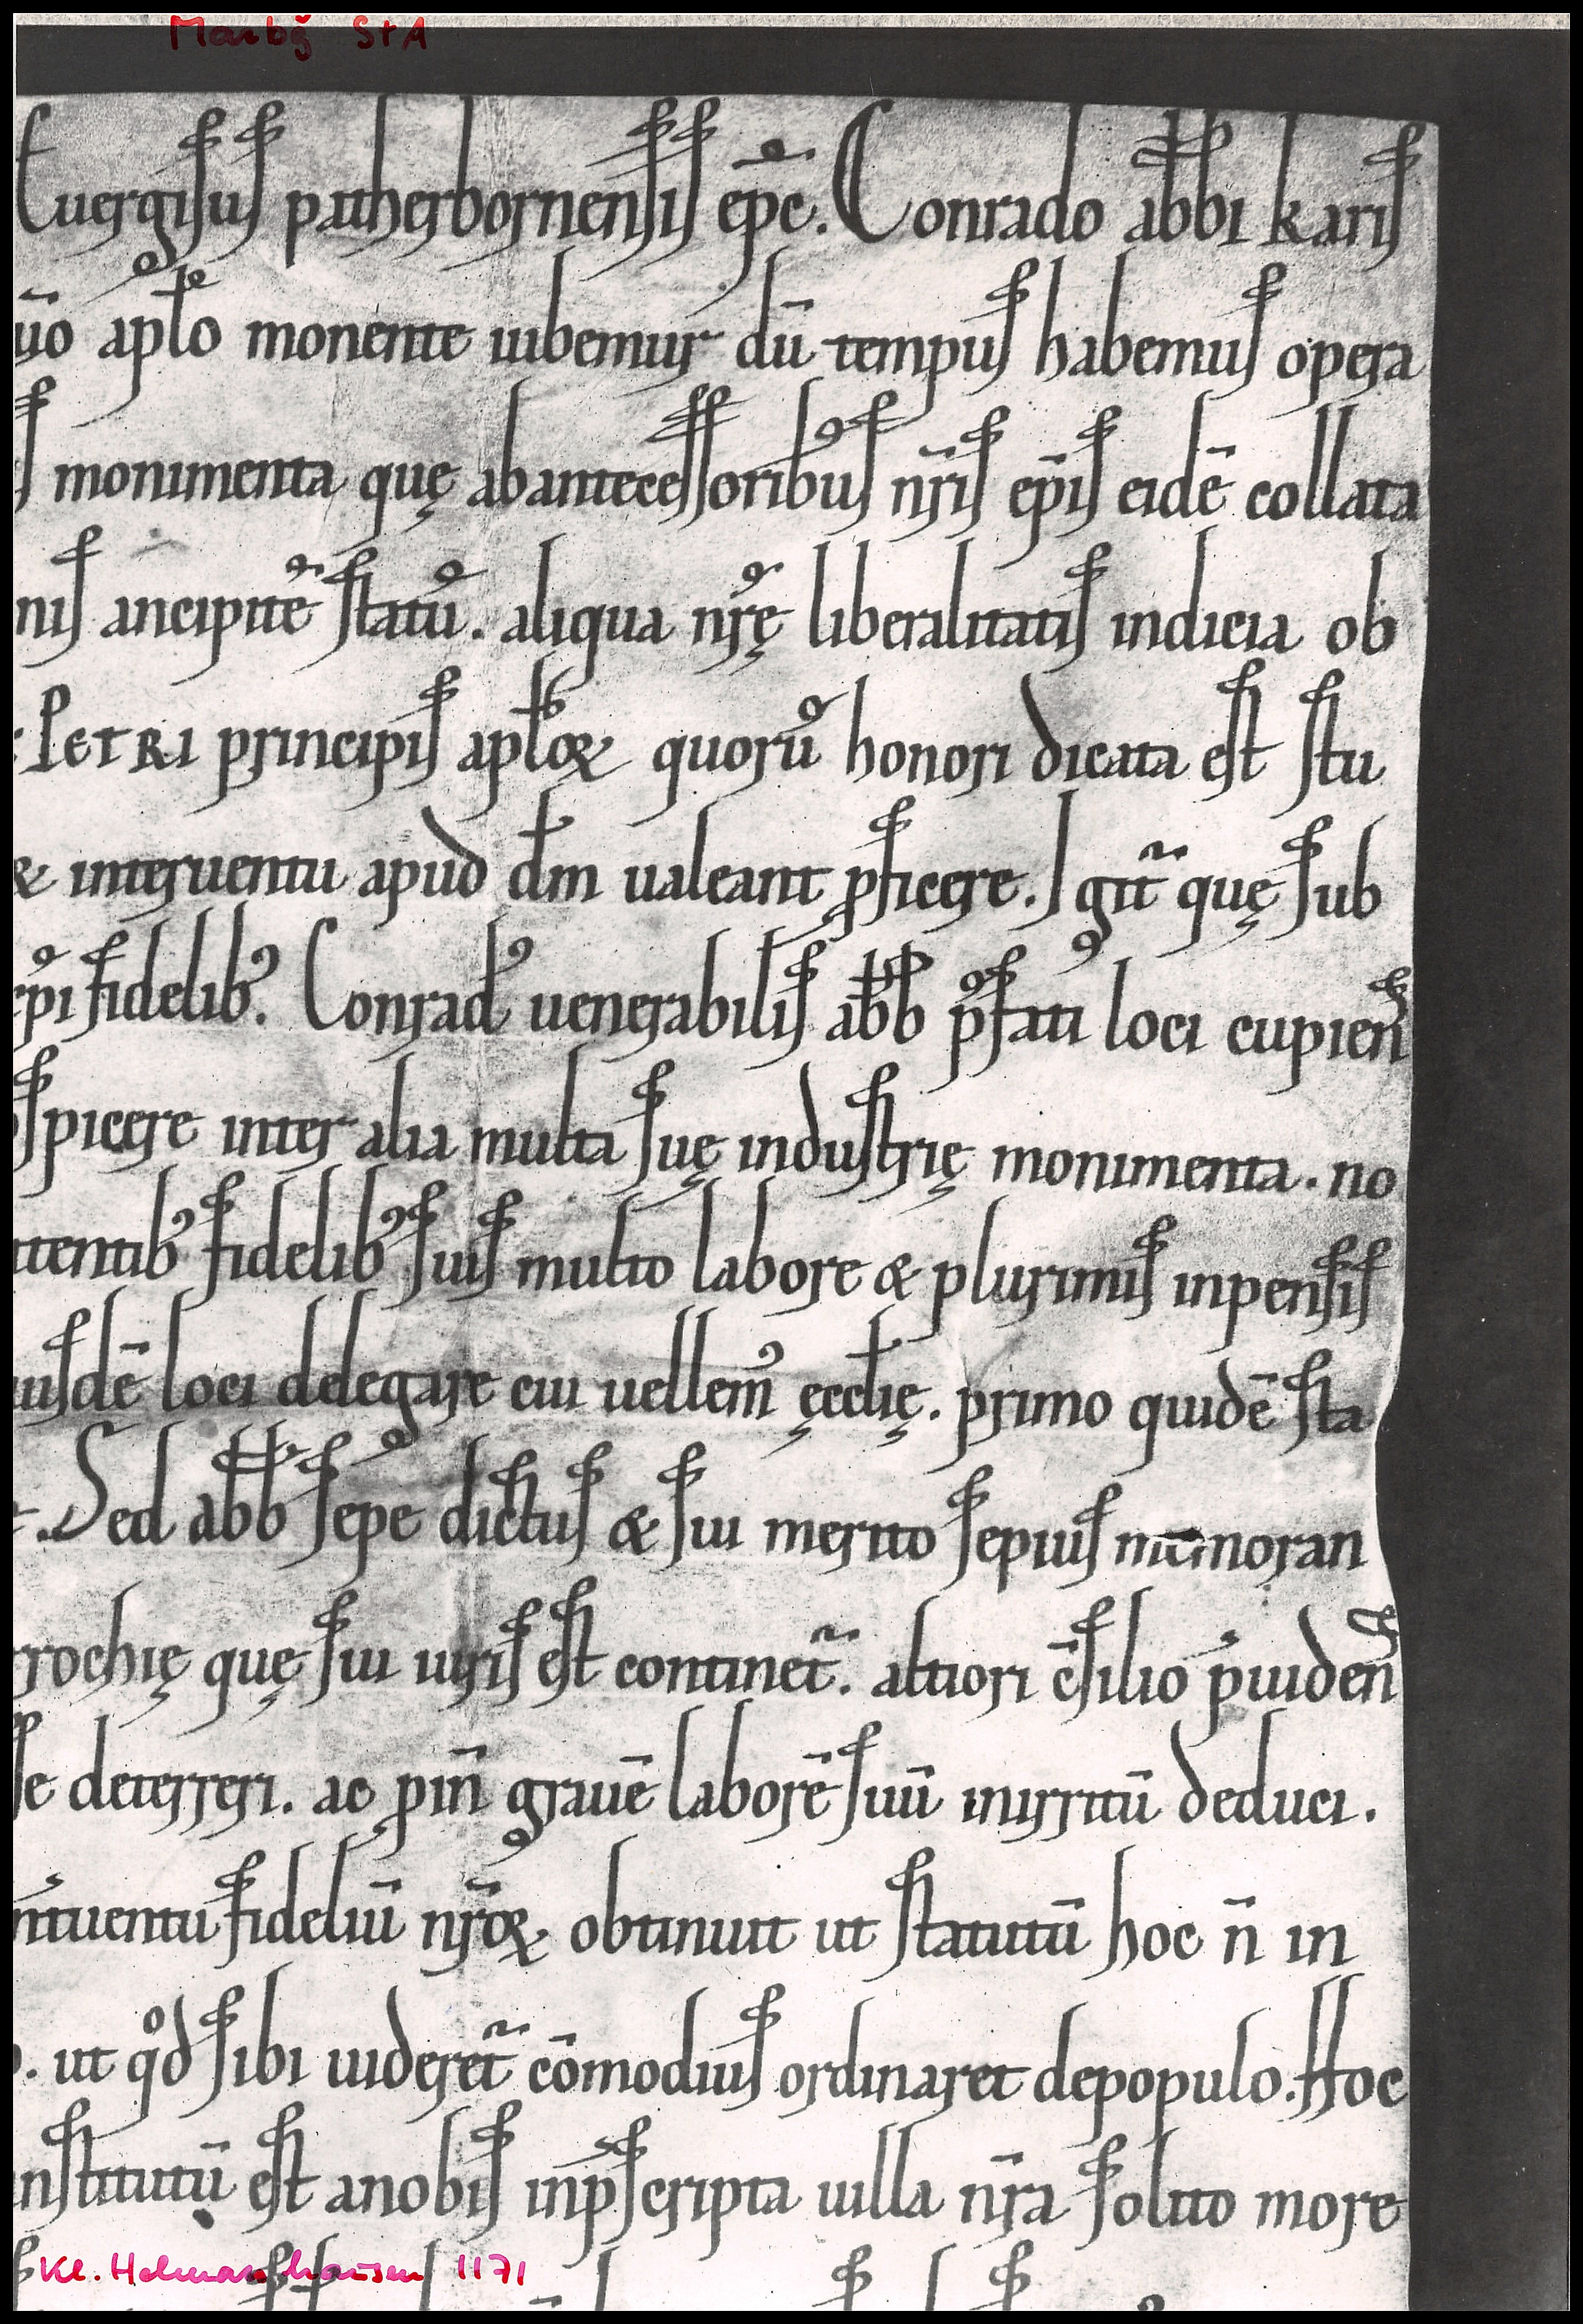 Marbg StA
Euergisus patherbornensis ep̄c. Conrado abbi karis
uō apl̄o monente iubemur dū tempus habemus opera
s monimenta quę abantecessoribus nr̄is ep̄is eidē collata
nis ancipitē statū. aliqua nr̄ę liberalitatis indicia ob
PETRI principis apl̄oꝝ quorū honori dicata est stu
& interuentu apud dm̄ ualeant ꝓficere. Igit̄ quę sub
ep̄i fidelibꝰ. Conradꝰ uenerabilis abb p̄fati loci cupien̄
spicere inter alia multa suę industrię monimenta. no
tentibꝰ fidelibꝰ suis multo labore & plurimis inpensis
iusdē loci delegare cui uellemꝰ ęccl̄ię. primo quidē sta
. Sed abb sepe dictus & sui merito sepius mēmoran
rochię quę sui iuris est continet̄. altiori c̄silio p̄uiden̄
se deterreri. ac ꝑin̄ grauē laborē suū inirritū deduci.
nuentu fideliū nr̄oꝝ obtinuit ut statutū hoc n̄ in
. ut qͦd sibi uideret̄ cōmodius ordinaret depopulo. Hoc
nstitutū est anobis inp̄scripta uilla nr̄a solito more
Kl. Helmarshausen 1171